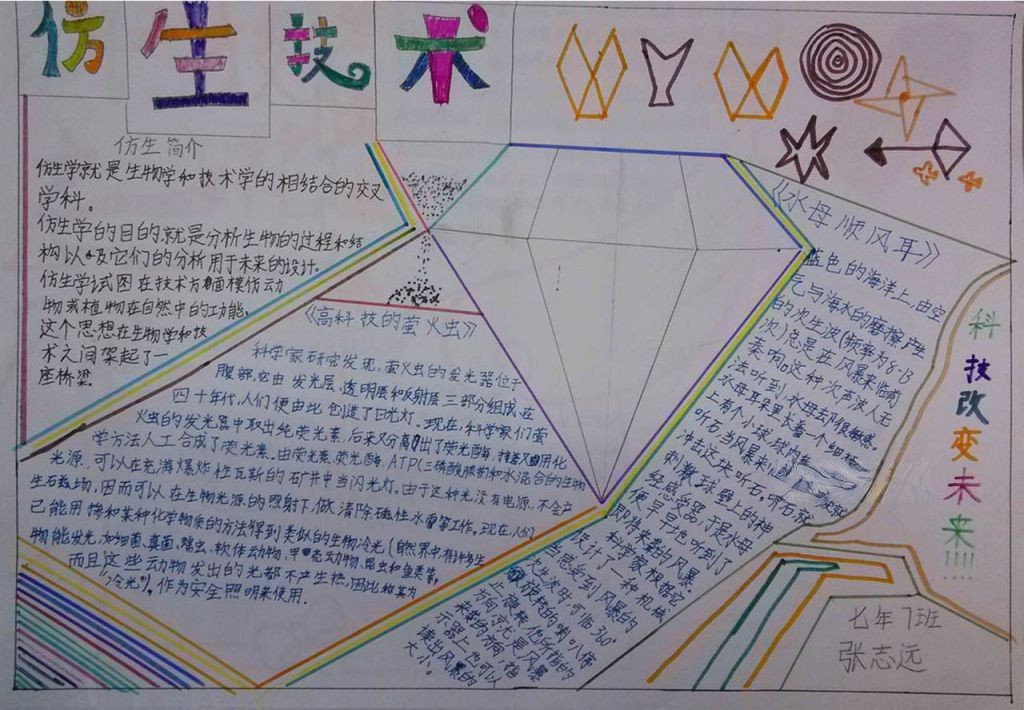 仿生技术
仿生简介
仿生学就是生物学和技术学的相结合的交叉
学科。
仿生学的目的就是分析生物的过程和结
构以及它们的分析用于未来的设计。
仿生学试图在技术方面模仿动
物或植物在自然中的功能,
这个思想在生物学和技
术之间架起了一
座桥梁。
《高科技的萤火虫》
科学家研究发现,萤火虫的发光器位于
腹部,它由发光层、透明层和反射层三部分组成,在
四十年代,人们便由此创造了日光灯。现在,科学家们萤
火虫的发光器中取出纯荧光素,后来又分离出了荧光酶,接着又用化
学方法人工合成了荧光素。由荧光素、荧光酶、ATP(三磷酸腺苷)和水混合的生物
光源,可以在充满爆炸性瓦斯的矿井中当闪光灯。由于这种光没有电源,不会产
生磁场,因而可以在生物光源的照射下,做清除磁性水雷等工作。现在,人们
已能用掺和某种化学物质的方法得到类似的生物冷光(自然界中有许多生
物能发光,如细菌、真菌、蠕虫、软体动物、甲壳动物、昆虫和鱼类等,
而且这些动物发出的光都不产生热,因此被称为
“冷光”)。作为安全照明来使用.
《水母顺风耳》
蓝色的海洋上,由空
气与海水的摩擦产生
的次生波(频率为8-13
次)总是在风暴来临前
奏响这种次声波人无
法听到,水母却很敏感,
水母耳朵里长着一个细柄,
上有个小球,球内有
听石,当风暴来
冲击这块听石,听石就
刺激球壁上的神
经感受器,于是水母
便早早地听到了
即将来暴的风暴.
科学家根据它
设计了一种机械
当感受到风暴的
次生波时,可临360°
旋转的喇叭停
止旋转他所指的
方向,讨尤是风暴
来袭的方向,指
示器上,也可以
读出风暴的
大小。
科技改变未来!!!!
七年7班
张志远